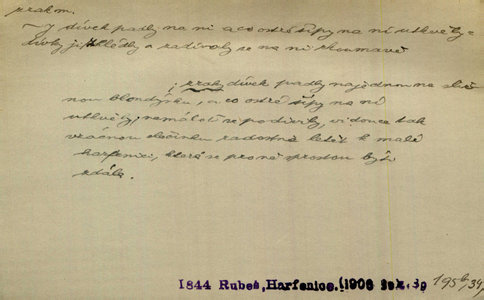 zrakem.
~ z dívek padly na ni a co ostré šípy na ni utkvěly
dívky ji zhlédly a zadívaly se na ni zkoumavě
; zraky dívek padly najednou na sličnou
nou blondýnku, a co ostré šípy na ní
utkvěly, nemálo se podivily, vidouce tak
vzácnou slečinku radostně letět k malé
harfenici, která se pro ně prostou býti
zdála.
1844 Rubeš, Harfenice. (1906
195b/34